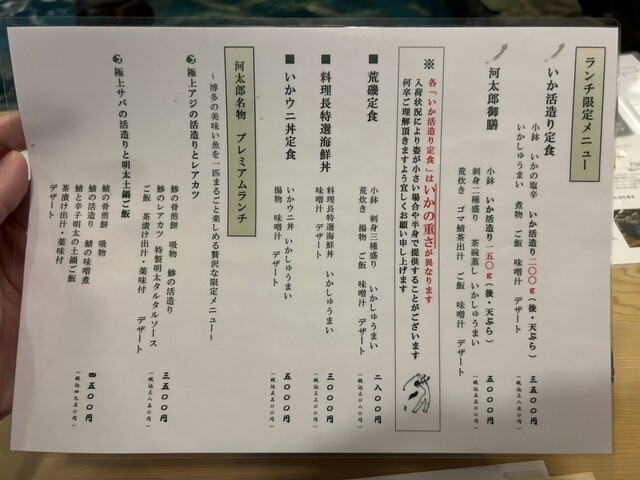 ランチ限定メニュー
いか活造り定食
小鉢 いかの塩辛 いか活造り二〇〇g(後・天ぷら)
いかしゅうまい 煮物 ご飯 味噌汁 デザート
三五〇〇円
(税込三八五〇円)
河太郎御膳
小鉢 いか活造り一五〇g(後・天ぷら)
刺身二種盛り 茶碗蒸し いかしゅうまい
荒炊き ゴマ鯖茶出汁 ご飯 味噌汁 デザート
五〇〇〇円
(税込五五〇〇円)
※
各「いか活造り定食」はいかの重さが異なります
入荷状況により姿が小さい場合や半身で提供することがございます
何卒ご理解頂きますよう宜しくお願い申し上げます
■荒磯定食
小鉢 刺身三種盛り いかしゅうまい
荒炊き 揚物 ご飯 味噌汁 デザート
二八〇〇円
(税込三〇八〇円)
■料理長特選海鮮丼
料理長特選海鮮丼 いかしゅうまい
味噌汁 デザート
三〇〇〇円
(税込三三〇〇円)
■いかウニ丼定食
いかウニ丼 いかしゅうまい
揚物 味噌汁 デザート
五〇〇〇円
(税込五五〇〇円)
河太郎名物 プレミアムランチ
~博多の美味い魚を一匹まるごと楽しめる贅沢な限定メニュー~
極上アジの活造りとレアカツ
鯵の骨煎餅 吸物 鯵の活造り
鯵のレアカツ 特製明太タルタルソース
ご飯 茶漬け出汁・薬味付 デザート
三五〇〇円
(税込三八五〇円)
極上サバの活造りと明太土鍋ご飯
鯖の骨煎餅 吸物
鯖の活造り 鯖の味噌煮
鯖と辛子明太の土鍋ご飯
茶漬け出汁・薬味付
デザート
四五〇〇円
(税込四九五〇円)